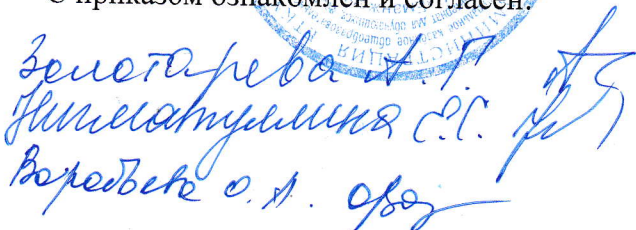 С приказом ознакомлен и согласен:
Золотарева А. Г.
Нигматуллина Е. С.
Воробьева О. А.